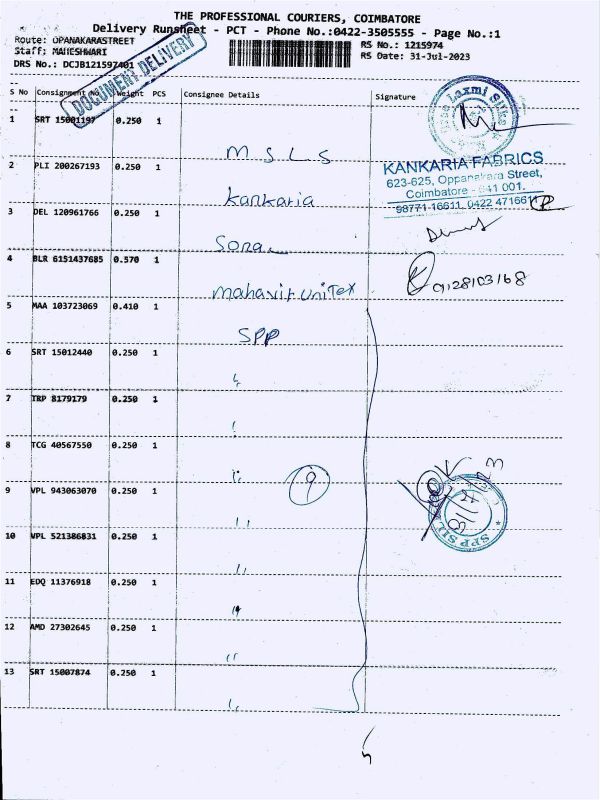 THE PROFESSIONAL COURIERS, COIMBATORE
Delivery Runsheet - PCT - Phone No.:0422-3505555 - Page No.:1
Route: OPANAKARASTREET
RS No.: 1215974
Staff: MAHESHWARI
RS Date: 31-Jul-2023
DRS No.: DCJB121597401
DOCUMENT DELIVERY
S No Consignment No Weight PCS Consignee Details Signature
1 SRT 15001197 0.250 1 M S L S
Laxmi Silks
2 PLI 200267193 0.250 1 Kankaria
KANKARIA FABRICS
623-625, Oppanakara Street,
Coimbatore - 641 001.
98771-16611, 0422 4716611
3 DEL 120961766 0.250 1 Sona
4 BLR 6151437685 0.570 1 Mahavir Unitex
5 MAA 103723069 0.410 1 SPP
6 SRT 15012440 0.250 1 "
7 TRP 8179179 0.250 1
8 TCG 40567550 0.250 1 "
9
9 VPL 943063070 0.250 1 "
SPP SIL
10 VPL 521386831 0.250 1 "
11 EDQ 11376918 0.250 1 "
12 AMD 27302645 0.250 1 "
13 SRT 15007874 0.250 1 "